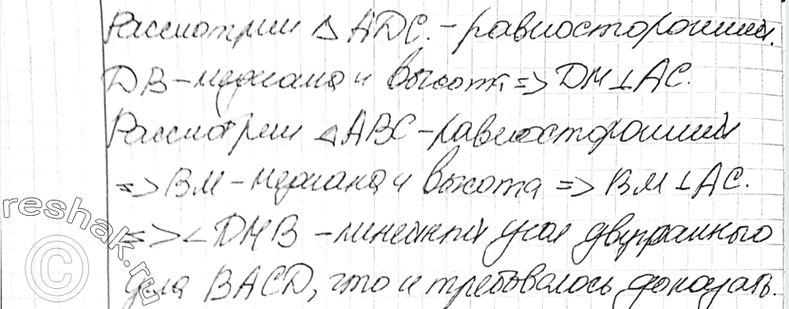 Рассмотрим △ ADC. - равносторонний.
DB - медиана и высота => DM ⊥ AC.
Рассмотрим △ABC - равносторонний
=> BM - медиана и высота => BM ⊥ AC.
=> ∠ DMB - линейный угол двугранного
угла BACD, что и требовалось доказать.
reshak.ru
©